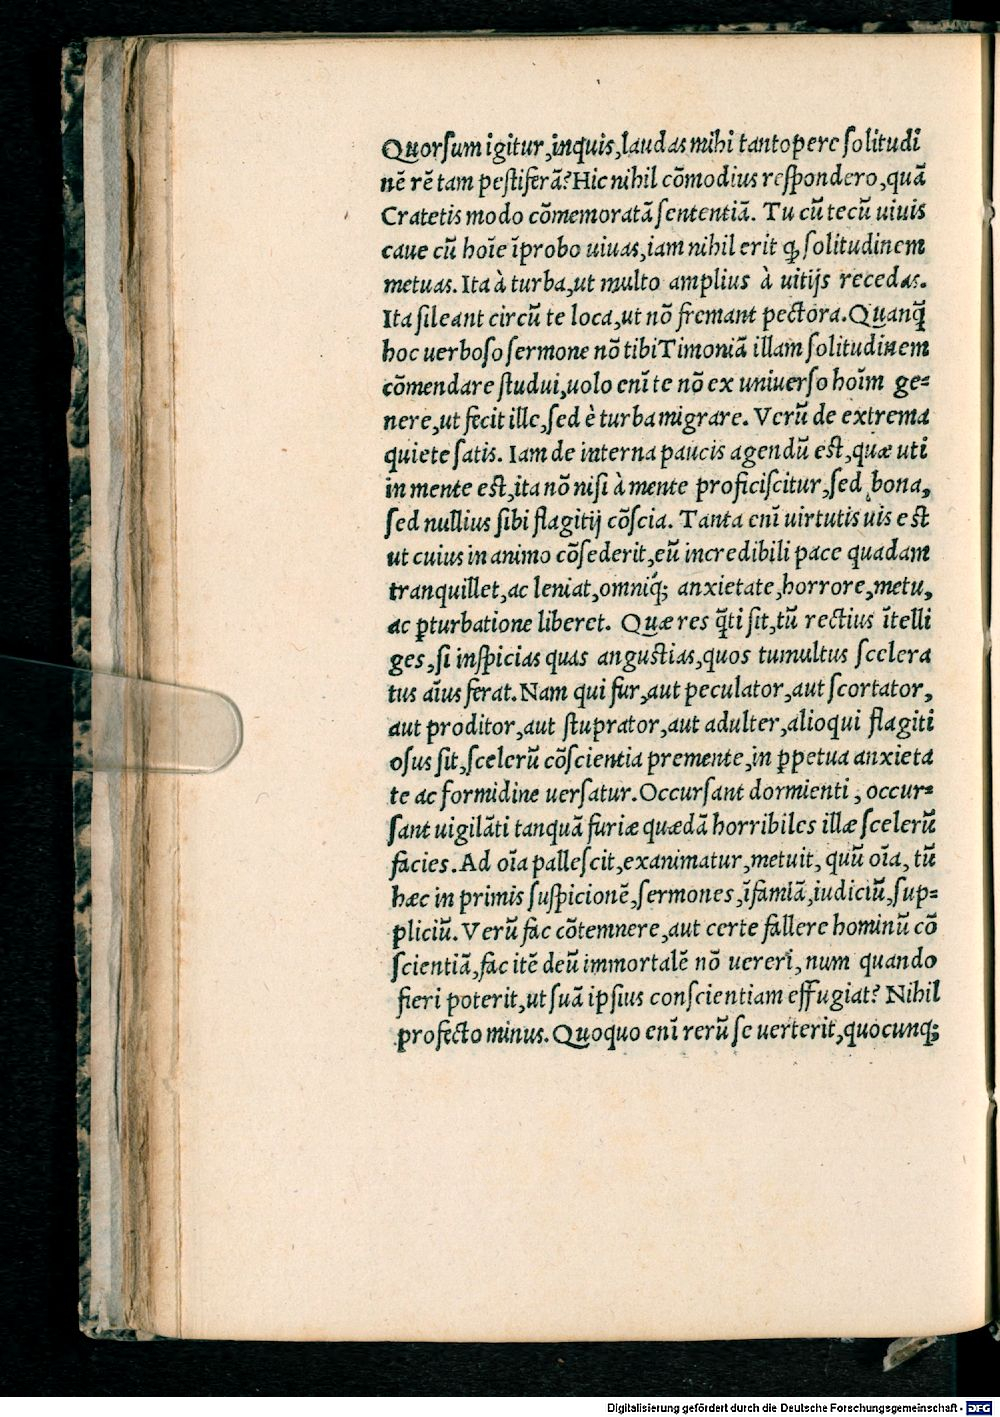 Quorſum igitur,inquis,laudas mihi tantopere ſolitudi
nē rē tam peſtiferā?Hic nihil cōmodius reſpondero,quā
Cratetis modo cōmemoratā ſententiā. Tu cū tecū uiuis
caue cū hoīe īprobo uiuas,iam nihil erit ꝙ ſolitudinem
metuas. Ita à turba,ut multo amplius à uitijs recedas.
Ita ſileant circū te loca,ut nō fremant pectora. Quanq̄
hoc uerboſo ſermone nō tibi Timoniā illam ſolitudinem
cōmendare ſtudui,uolo enī te nō ex uniuerſo hoīm ge=
nere,ut fecit ille,ſed è turba migrare. Verū de extrema
quiete ſatis. Iam de interna paucis agendū eſt,quæ uti
in mente eſt,ita nō niſi à mente proficiſcitur,ſed bona,
ſed nullius ſibi flagitij cōſcia. Tanta enī uirtutis uis eſt
ut cuius in animo cōſederit,eū incredibili pace quadam
tranquillet,ac leniat,omniq́; anxietate,horrore,metu,
ac ꝑturbatione liberet. Quæ res q̄ti ſit,tū rectius ītelli
ges,ſi inſpicias quas anguſtias,quos tumultus ſcelera
tus aīus ferat. Nam qui fur,aut peculator,aut ſcortator,
aut proditor,aut ſtuprator,aut adulter,alioqui flagiti
oſus ſit,ſcelerū cōſcientia premente,in ꝑpetua anxieta
te ac formidine uerſatur. Occurſant dormienti, occur=
ſant uigilāti tanquā furiæ quædā horribiles illæ ſcelerū
facies. Ad oīa palleſcit,exanimatur,metuit, quū oīa, tū
hæc in primis ſuſpicionē,ſermones,īfamiā,iudiciū,ſup=
pliciū. Verū fac cōtemnere,aut certe fallere hominū cō
ſcientiā,fac itē deū immortalē nō uereri,num quando
fieri poterit,ut ſuā ipſius conſcientiam effugiat? Nihil
profecto minus. Quoquo enī rerū ſe uerterit,quocunq;
Digitalisierung gefördert durch die Deutsche Forschungsgemeinschaft - DFG